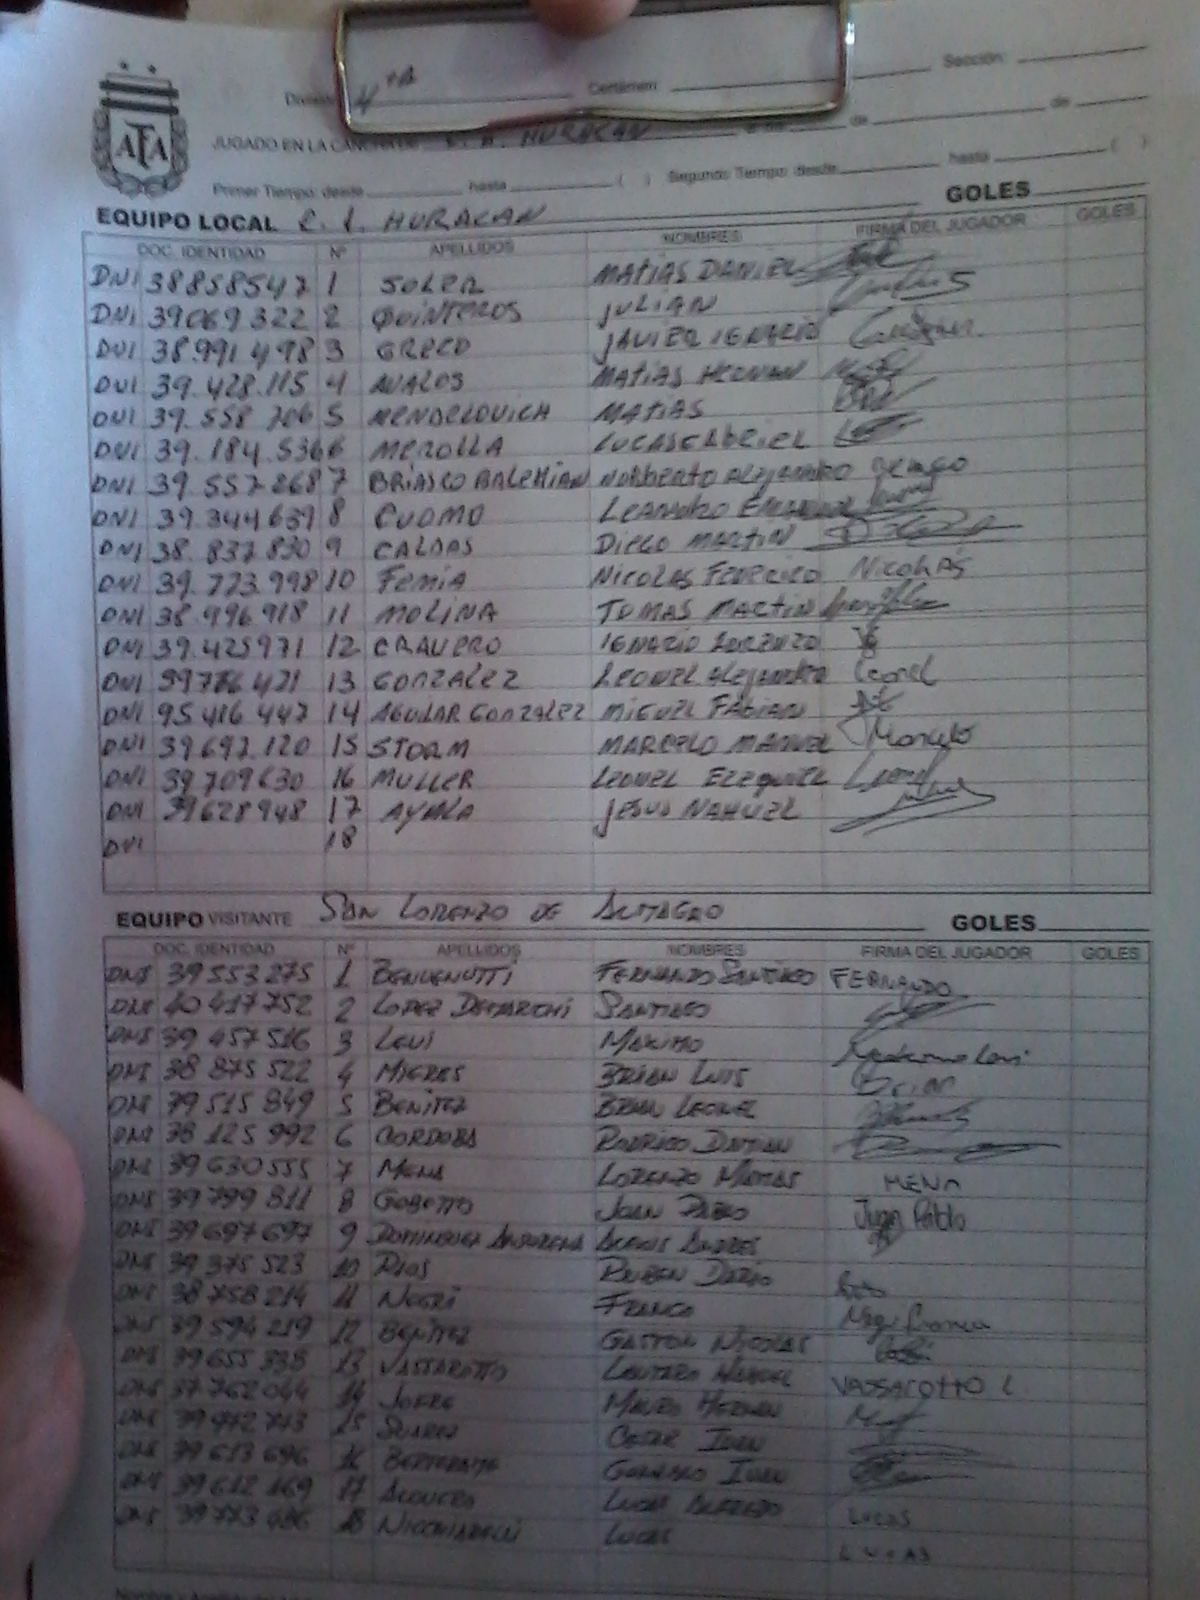 4ta Certámen Sección:
JUGADO EN LA CANCHA DE C. A. HURACAN de de
Primer Tiempo: desde hasta ( ) Segundo Tiempo: desde hasta ( )
AFA
EQUIPO LOCAL C. A. HURACAN GOLES
DOC. IDENTIDAD Nº APELLIDOS NOMBRES FIRMA DEL JUGADOR GOLES
DNI 38858547 1 SOLER MATIAS DANIEL
DNI 39069322 2 QUINTEROS JULIAN
DNI 38.991.498 3 GRECO JAVIER IGNACIO
DNI 39.428.115 4 AVALOS MATIAS HERNAN
DNI 39.558 706 5 MENDELOVICH MATIAS
DNI 39.184.536 6 MEROLLA LUCAS GABRIEL
DNI 39.557 268 7 BRIASCO BALEKIAN NORBERTO ALEJANDRO
DNI 39 344 639 8 CUOMO LEANDRO
DNI 38.837.830 9 CALDAS DIEGO MARTIN
DNI 39.723.998 10 FEMIA NICOLAS FEDERICO NICOLÁS
DNI 38.996.918 11 MOLINA TOMAS MARTIN
DNI 39.425971 12 CRAVERO IGNACIO LORENZO
DNI 39786421 13 GONZALEZ LEONEL ALEJANDRO Leonel
DNI 95 416 447 14 AGUILAR GONZALEZ MIGUEL FABIAN
DNI 39 692.120 15 STORM MARCELO MANUEL Marcelo
DNI 39 709 630 16 MULLER LEONEL EZEQUIEL
DNI 39628948 17 AYALA JESUS NAHUEL
DNI 18
EQUIPO VISITANTE SAN LORENZO DE ALMAGRO GOLES
DOC. IDENTIDAD Nº APELLIDOS NOMBRES FIRMA DEL JUGADOR GOLES
DNI 39 553 275 1 BENVENUTTI FERNANDO SANTIAGO FERNANDO
DNI 40 417 752 2 LOPEZ DEMARCHI SANTIAGO
DNI 39 457 516 3 LEVI MAXIMO
DNI 38 875 522 4 MIERES BRIAN LUIS Brian
DNI 39 515 849 5 BENITEZ BRIAN LEONEL
DNI 38 125 992 6 CORDOBA RODRIGO DAMIAN
DNI 39 630 555 7 MENA LORENZO MATIAS MENA
DNI 39 799 811 8 GOBETTO JUAN PABLO Juan Pablo
DNI 39 697 697 9 DOMINGUEZ ALEXIS ANDRES
DNI 39 375 523 10 RIOS RUBEN DARIO
DNI 38 758 214 11 NEGRI FRANCO Negri franco
DNI 39 594 219 12 BENITEZ GASTON NICOLAS
DNI 39 655 338 13 VASSAROTTO LAUTARO MANUEL VASSAROTTO L
DNI 37 762 044 14 JOFRE MAURO HERNAN
DNI 15 SUAREZ CESAR IVAN
DNI 39 613 696 16 GONZALO IVAN
DNI 39 612 169 17 LUCAS ALFREDO LUCAS
DNI 39 773 18 LUCAS LUCAS